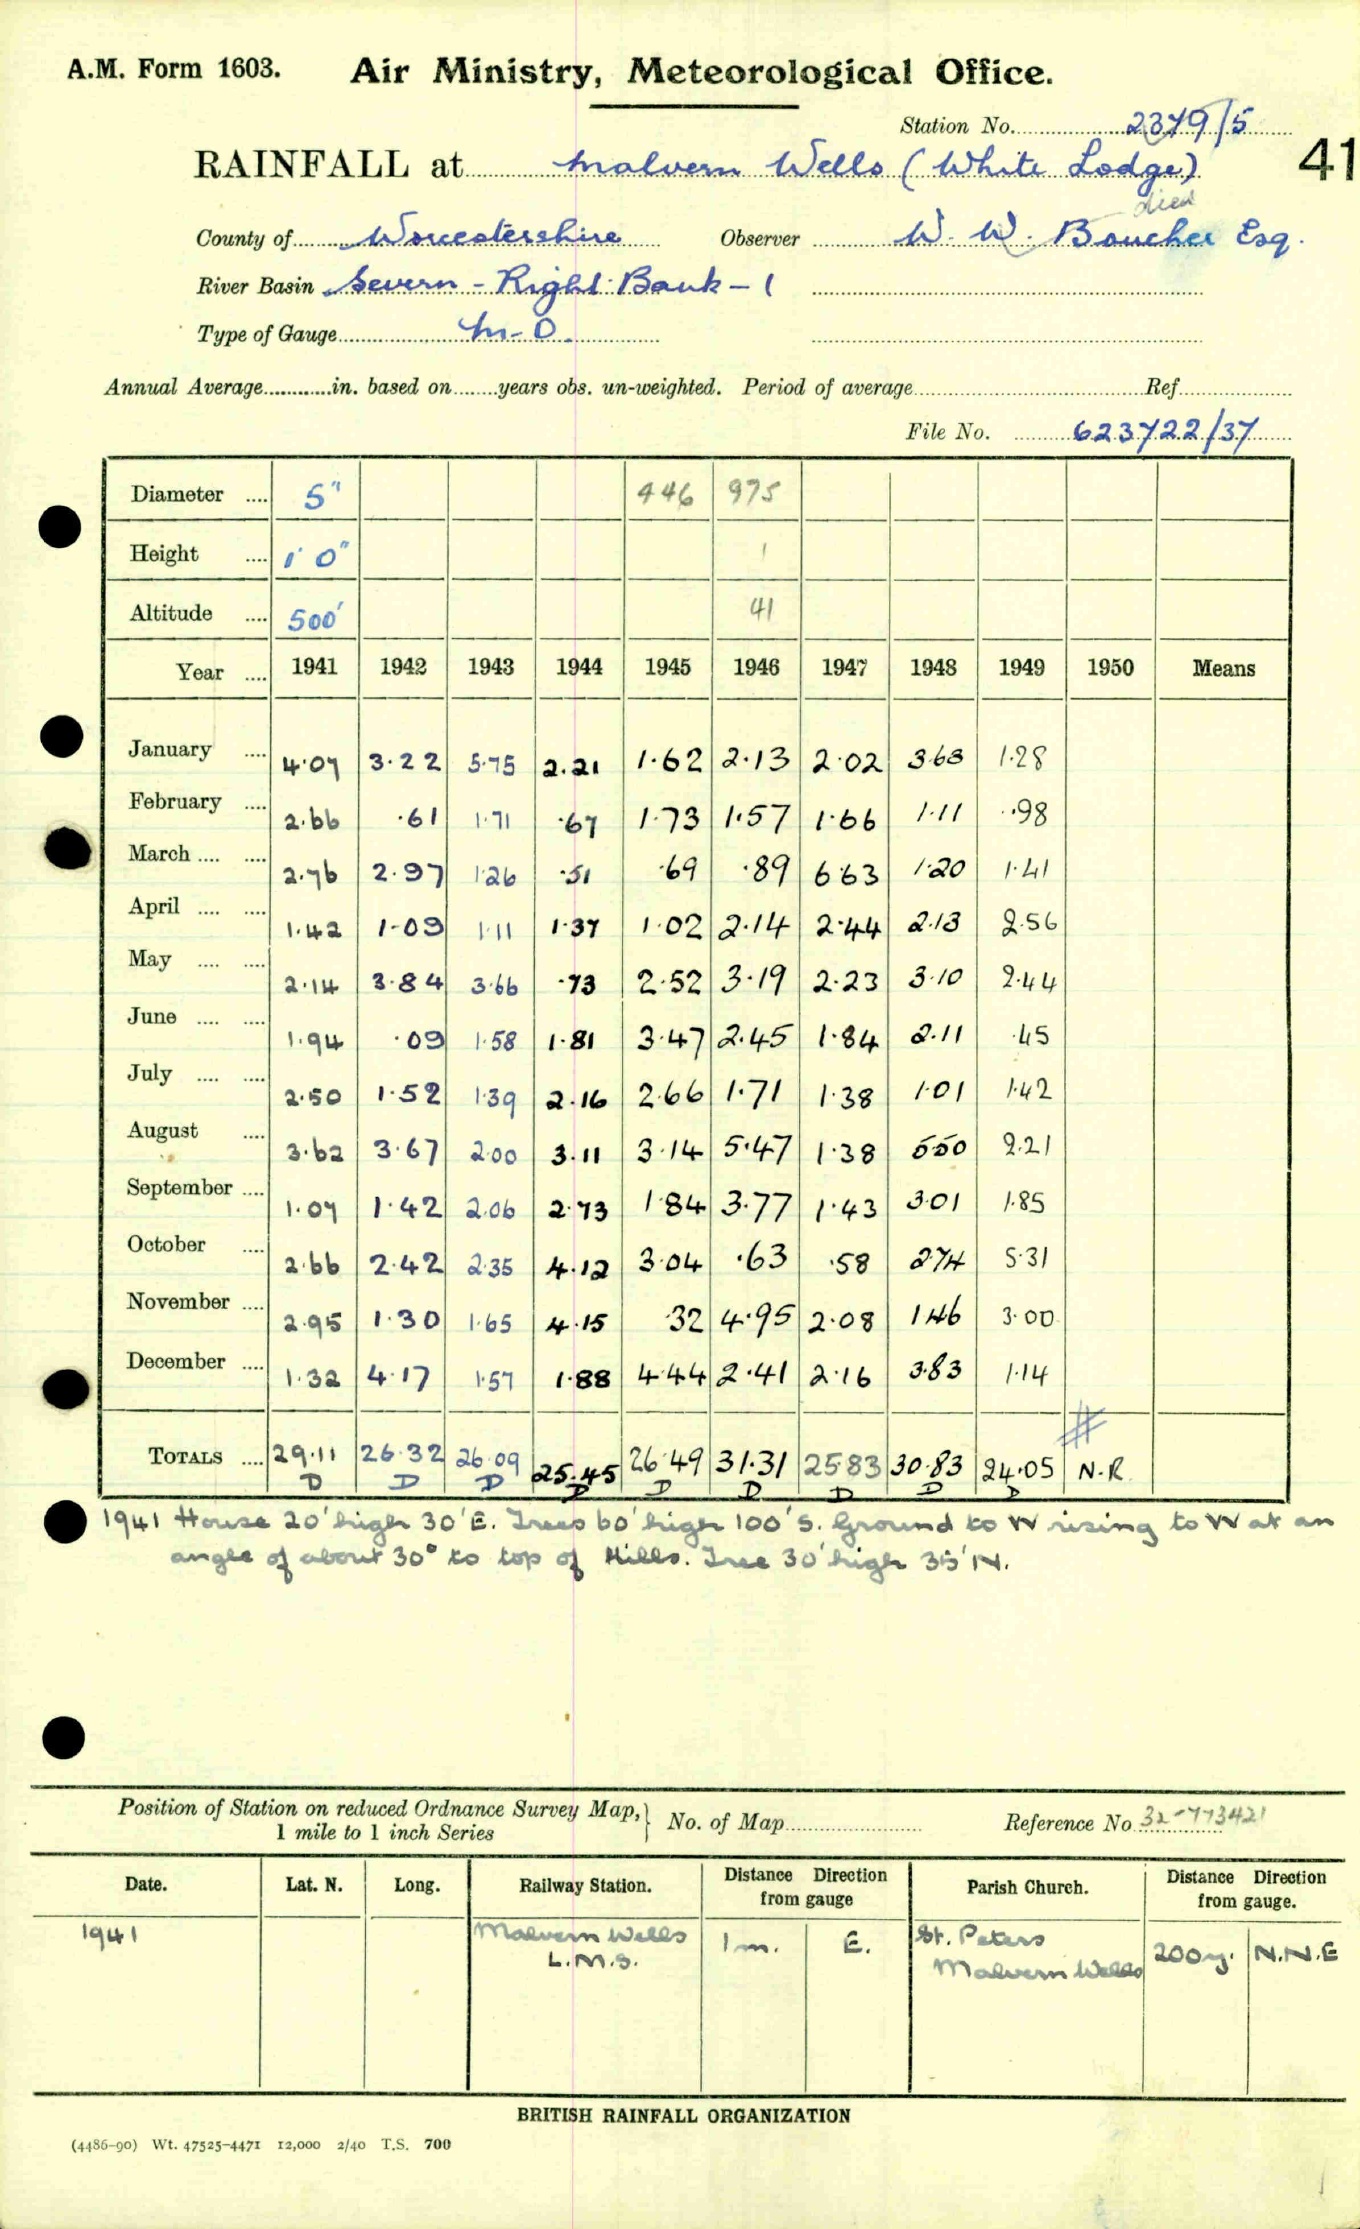 A.M. Form 1603. Air Ministry, Meteorological Office.
Station No. 2379/5
RAINFALL at Malvern Wells (White Lodge) 41
died
County of Worcestershire Observer W. W. Boucher Esq.
River Basin Severn - Right Bank - 1
Type of Gauge M-O.
Annual Average in. based on years obs. un-weighted. Period of average Ref
File No. 623722/37
Diameter 5" 446 975
Height 1' 0" 1
Altitude 500' 41
Year 1941 1942 1943 1944 1945 1946 1947 1948 1949 1950 Means
January 4.07 3.22 5.75 2.21 1.62 2.13 2.02 3.63 1.28
February 2.66 .61 1.71 .67 1.73 1.57 1.66 1.11 .98
March 2.76 2.97 1.26 .51 .69 .89 6.63 1.20 1.41
April 1.42 1.09 1.11 1.37 1.02 2.14 2.44 2.13 2.56
May 2.14 3.84 3.66 .73 2.52 3.19 2.23 3.10 2.44
June 1.94 .09 1.58 1.81 3.47 2.45 1.84 2.11 .45
July 2.50 1.52 1.39 2.16 2.66 1.71 1.38 1.01 1.42
August 3.62 3.67 2.00 3.11 3.14 5.47 1.38 5.50 2.21
September 1.07 1.42 2.06 2.73 1.84 3.77 1.43 3.01 1.85
October 2.66 2.42 2.35 4.12 3.04 .63 .58 2.74 5.31
November 2.95 1.30 1.65 4.15 .32 4.95 2.08 1.46 3.00
December 1.32 4.17 1.57 1.88 4.44 2.41 2.16 3.83 1.14
#
TOTALS 29.11 26.32 26.09 25.45 26.49 31.31 25.83 30.83 24.05 N.R.
D D D D D D D D D
1941 House 20' high 30' E. Trees 60' high 100' S. Ground to W rising to W at an
angle of about 30° to top of Hills. Tree 30' high 35' N.
Position of Station on reduced Ordnance Survey Map,
1 mile to 1 inch Series } No. of Map Reference No 32-773421
Date. Lat. N. Long. Railway Station. Distance Direction from gauge Parish Church. Distance Direction from gauge.
1941 Malvern Wells 1 m. E. St. Peters 200 y. N.N.E
L.M.S. Malvern Wells
BRITISH RAINFALL ORGANIZATION
(4486-90) Wt. 47525-4471 12,000 2/40 T.S. 700